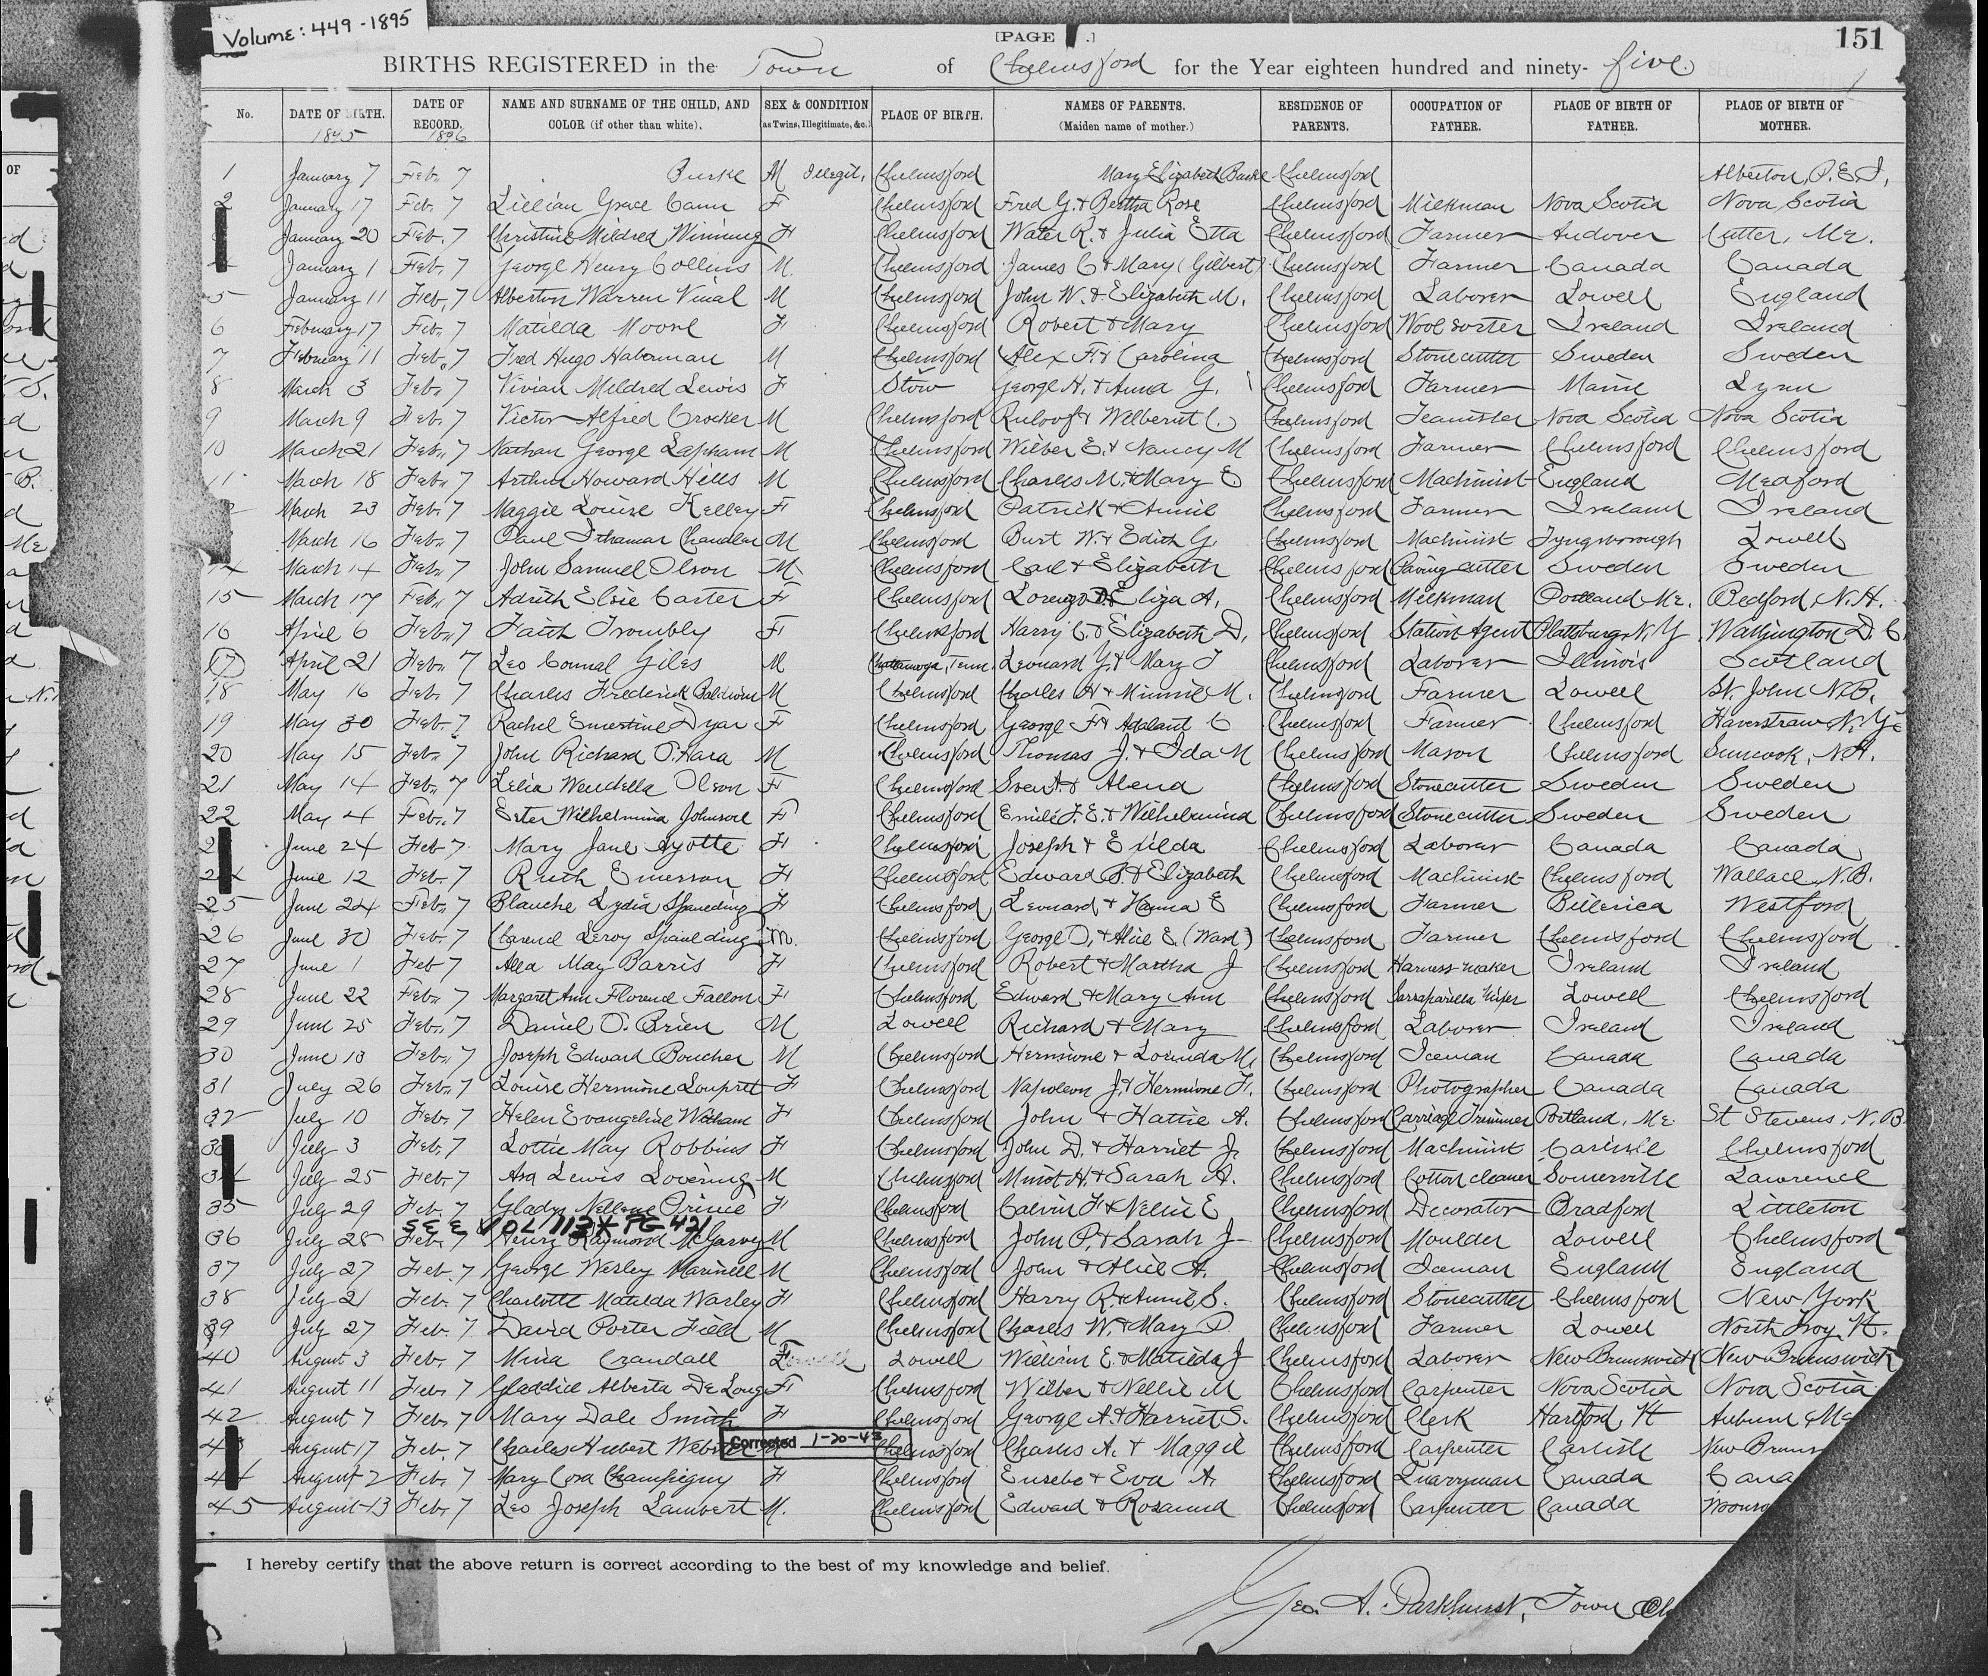 Volume: 449-1895
[PAGE .]
151
BIRTHS REGISTERED in the Town of Chelmsford for the Year eighteen hundred and ninety- five.
No. DATE OF BIRTH. 1895 DATE OF RECORD. 1896 NAME AND SURNAME OF THE CHILD, AND COLOR (if other than white). SEX & CONDITION (as Twins, Illegitimate, &c.) PLACE OF BIRTH. NAMES OF PARENTS. (Maiden name of mother.) RESIDENCE OF PARENTS. OCCUPATION OF FATHER. PLACE OF BIRTH OF FATHER. PLACE OF BIRTH OF MOTHER.
1 January 7 Feb. 7 Burke M Illegit. Chelmsford Mary Elizabeth Burke Chelmsford Alberton, P.E.I.
2 January 17 Feb. 7 Lillian Grace Cann F Chelmsford Fred G. & Bertha Rose Chelmsford Milkman Nova Scotia Nova Scotia
January 20 Feb. 7 Christine Mildred Winning F Chelmsford Water R. & Julia Etta Chelmsford Farmer Andover Cutler, Me.
January 1 Feb. 7 George Henry Collins M. Chelmsford James C & Mary (Gilbert) Chelmsford Farmer Canada Canada
5 January 11 Feb. 7 Alberton Warren Vinal M Chelmsford John W. & Elizabeth M. Chelmsford Laborer Lowell England
6 February 17 Feb. 7 Matilda Moore F Chelmsford Robert & Mary Chelmsford Wool sorter Ireland Ireland
7 February 11 Feb. 7 Fred Hugo Haberman M Chelmsford Alex F. & Carolina Chelmsford Stonecutter Sweden Sweden
8 March 3 Feb. 7 Vivian Mildred Lewis F Stow George H. & Anna G. Chelmsford Farmer Maine Lynn
9 March 9 Feb. 7 Victor Alfred Crocker M Chelmsford Ruloof & C. Chelmsford Teamster Nova Scotia Nova Scotia
10 March 21 Feb. 7 Nathan George Lapham M Chelmsford Wilber E. & Nancy M Chelmsford Farmer Chelmsford Chelmsford
11 March 18 Feb. 7 Arthur Howard Hills M Chelmsford Charles M. & Mary E Chelmsford Machinist England Medford
March 23 Feb. 7 Maggie Louise Kelley F Chelmsford Patrick & Annie Chelmsford Farmer Ireland Ireland
March 16 Feb. 7 Paul Ithamar Chandler M Chelmsford Burt W. & Edith G. Chelmsford Machinist Tyngsborough Lowell
14 March 14 Feb. 7 John Samuel Olson M. Chelmsford Carl & Elizabeth Chelmsford Paving cutter Sweden Sweden
15 March 17 Feb. 7 Adrith Elsie Carter F Chelmsford Lorenzo D. & Eliza A. Chelmsford Milkman Portland Me. Bedford, N.H.
16 April 6 Feb. 7 Faith Trombly F Chelmsford Harry C. & Elizabeth D. Chelmsford Station Agent Plattsburg N.Y Washington D.C.
17 April 21 Feb. 7 Leo Connal Giles M Chattanooga, Tenn. Leonard G. & Mary T Chelmsford Laborer Illinois Scotland
18 May 16 Feb. 7 Charles Frederick Baldwin M Chelmsford Charles H & Minnie M. Chelmsford Farmer Lowell St. John N.B.
19 May 30 Feb. 7 Rachel Ernestine Dyar F Chelmsford George F. & Adalant C Chelmsford Farmer Chelmsford Haverstraw N.Y.
20 May 15 Feb. 7 John Richard O'Hara M Chelmsford Thomas J. & Ida M Chelmsford Mason Chelmsford Suncook, N.H.
21 May 14 Feb. 7 Lelia Wendella Olson F Chelmsford Sven A. & Alena Chelmsford Stonecutter Sweden Sweden
22 May 4 Feb. 7 Ester Wilhelmina Johnson F Chelmsford Emil F. E. & Wilhelmina Chelmsford Stonecutter Sweden Sweden
2 June 24 Feb 7 Mary Jane Ayotte F Chelmsford Joseph & Exilda Chelmsford Laborer Canada Canada
24 June 12 Feb. 7 Ruth Emerson F Chelmsford Edward B. & Elizabeth Chelmsford Machinist Chelmsford Wallace, N.B.
25 June 24 Feb. 7 Blanche Lydia Spaulding F Chelmsford Leonard & Hanna E Chelmsford Farmer Billerica Westford
26 June 30 Feb. 7 Clarence Leroy Spaulding M. Chelmsford George O. & Alice E (Ward) Chelmsford Farmer Chelmsford Chelmsford
27 June 1 Feb 7 Alla May Barris F Chelmsford Robert & Martha J Chelmsford Harness-maker Ireland Ireland
28 June 22 Feb. 7 Margaret Ann Florence Fallon F Chelmsford Edward & Mary Ann Chelmsford Sarsaparilla Mixer Lowell Chelmsford
29 June 25 Feb. 7 Daniel O'Brien M Lowell Richard & Mary Chelmsford Laborer Ireland Ireland
30 June 13 Feb. 7 Joseph Edward Boucher M Chelmsford Hermione & Lorinda M. Chelmsford Iceman Canada Canada
31 July 26 Feb. 7 Louise Hermine Loupret F Chelmsford Napoleon J. & Hermione F. Chelmsford Photographer Canada Canada
32 July 10 Feb. 7 Helen Evangeline Witham F Chelmsford John & Hattie A. Chelmsford Carriage Trimmer Portland, Me. St Stevens, N.B.
3 July 3 Feb. 7 Lottie May Robbins F Chelmsford John D. & Harriet J. Chelmsford Machinist Carlisle Chelmsford
34 July 25 Feb. 7 Asa Lewis Lovering M Chelmsford Minot H. & Sarah A. Chelmsford Cotton cleaner Somerville Lawrence
35 July 29 Feb. 7 Gladys Nellene Prince F Chelmsford Calvin F & Nellie E Chelmsford Decorator Bradford Littleton
SEE VOL 113* PG 421
36 July 28 Feb. 7 Henry Raymond McGarvey M Chelmsford John P. & Sarah J Chelmsford Moulder Lowell Chelmsford
37 July 27 Feb. 7 George Wesley Marinell M Chelmsford John & Alice A. Chelmsford Iceman England England
38 July 21 Feb. 7 Charlotte Matilda Warley F Chelmsford Harry R. & Annie S. Chelmsford Stonecutter Chelmsford New York
39 July 27 Feb. 7 David Porter Field M Chelmsford Charles W. & Mary D. Chelmsford Farmer Lowell North Troy Vt.
40 August 3 Feb. 7 Mina Crandall F Lowell William E. & Matilda J Chelmsford Laborer New Brunswick New Brunswick
41 August 11 Feb. 7 Gladdice Alberta DeLong F Chelmsford Wilber & Nellie M Chelmsford Carpenter Nova Scotia Nova Scotia
42 August 7 Feb. 7 Mary Dale Smith F Chelmsford George A. & Harriet S. Chelmsford Clerk Hartford, Vt Auburn, Me
Corrected 1-20-43
4 August 17 Feb. 7 Charles Hubert Webster M Chelmsford Charles A. & Maggie Chelmsford Carpenter Carlisle New Bruns
44 August 2 Feb. 7 Mary Cora Champigny F Chelmsford Eusebe & Eva A. Chelmsford Quarryman Canada Cana
45 August 13 Feb. 7 Leo Joseph Lambert M. Chelmsford Edward & Rosanna Chelmsford Carpenter Canada
I hereby certify that the above return is correct according to the best of my knowledge and belief.
Geo. A. Parkhurst, Town Cl